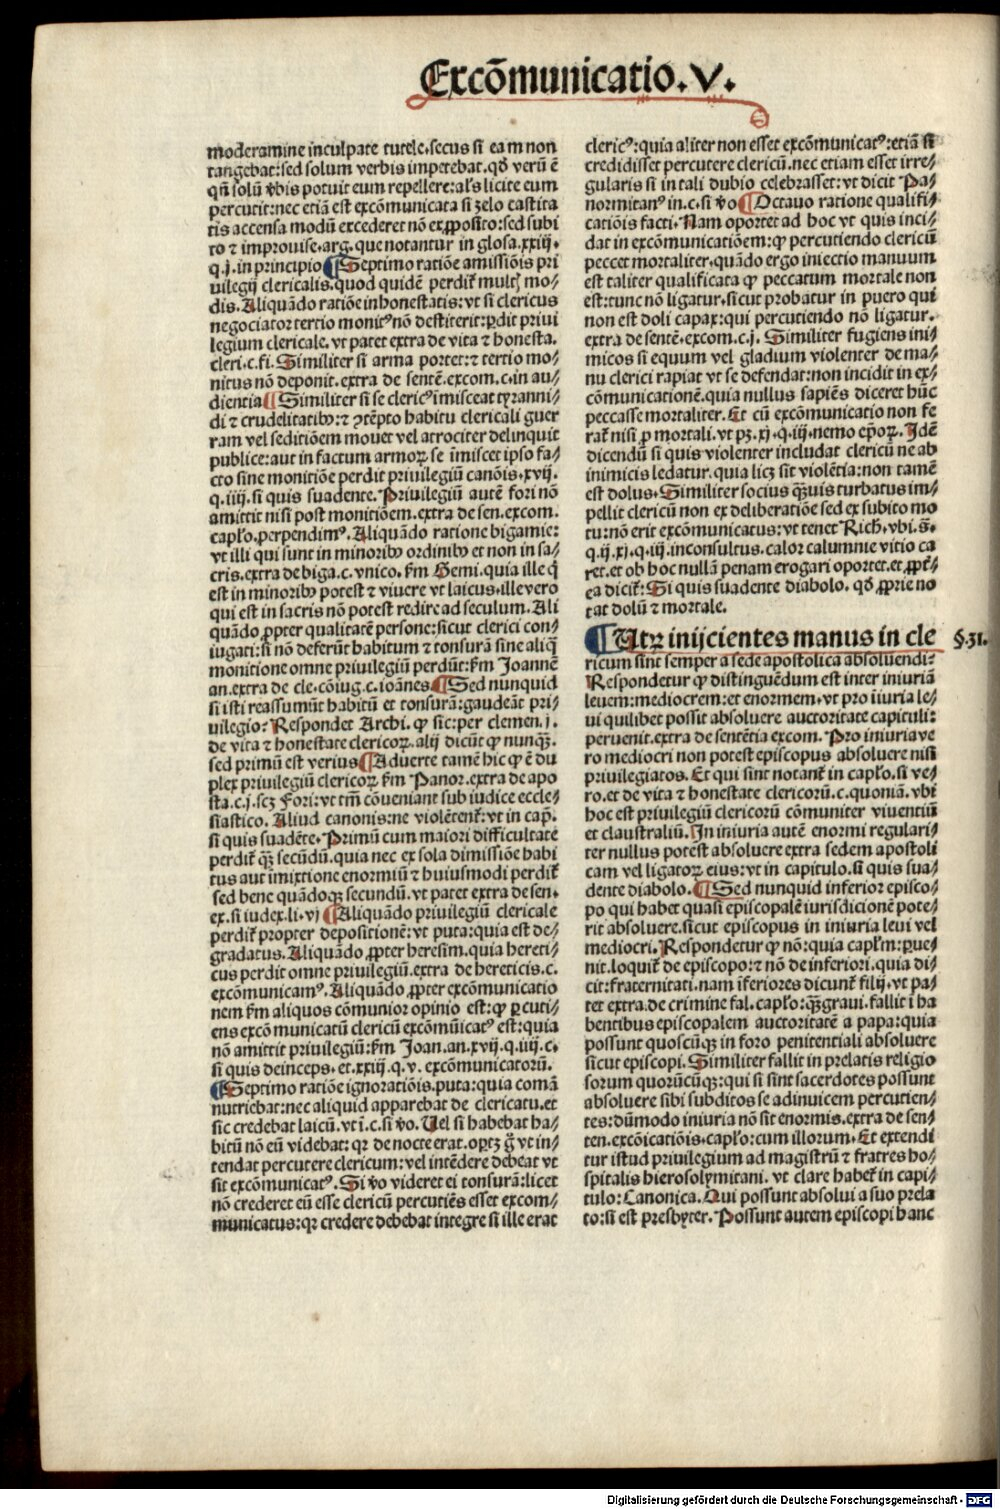 Excōmunicatio.V.
moderamine inculpate tutele.secus si eam non
tangebat:sed solum verbis impetebat.qđ verū ē
qñ solū v̄bis potuit eum repellere:al's licite eum
percutit:nec etiā est excōmunicata si zelo castita
tis accensa modū excederet nō ex ꝓposito:sed subi
to ⁊ improuise.arg.que notantur in glosa.xxiij.
q.j.in principio ¶ Septimo ratiōe amissiōis pri
uilegij clericalis.quod quidē perdit̄ multꝭ mo/
dis.Aliquādo ratiōe inhonestatis:vt si clericus
negociator tertio monitꝰ nō destiterit:ꝑdit priui
legium clericale.vt patet extra de vita ⁊ honesta.
cleri.c.fi.Similiter si arma portet:⁊ tertio mo/
nitus nō deponit.extra de sentē.excom.c.in au/
dientia ¶ Similiter si se clericꝰ imisceat tyranni/
di ⁊ crudelitatibꝰ:⁊ ꝯtēpto habitu clericali guer
ram vel seditiōem mouet vel atrociter delinquit
publice:aut in factum armoꝝ se imiscet ipso fa/
cto sine monitiōe perdit priuilegiū canōis.xvij.
q.iiij.si quis suadente.Priuilegiū autē fori nō
amittit nisi post monitiōem.extra de sen.excom.
capl'o.perpendimꝰ.Aliquādo ratione bigamie:
vt illi qui sunt in minoribꝰ ordinibꝰ et non in sa/
cris.extra de biga.c.vnico.ſm Gemi.quia ille q̄
est in minoribꝰ potest ⁊ viuere vt laicus.ille vero
qui est in sacris nō potest redire ad seculum.Ali
quādo ꝓpter qualitatē persone:sicut clerici con/
iugati:si nō deferūt habitum ⁊ tonsurā sine aliq̄
monitione omne priuilegiū perdūt:ſm Joannē
an.extra de cle.cōiug.c.ioānes. ¶ Sed nunquid
si isti reassumūt habitū et tonsurā:gaudeāt pri/
uilegio? Respondet Archi.ꝙ sic:per clemen.j.
de vita ⁊ honestate clericoꝝ.alij dicūt ꝙ nunq̄ꝫ.
sed primū est verius ¶ Aduerte tamē hic ꝙ ē du
plex priuilegiū clericoꝝ ſm Panor.extra de apo
sta.c.j.scꝫ Fori:vt tm̄ cōueniant sub iudice eccle/
siastico.Aliud canonis:ne violētent̄:vt in cap̄.
si quis suadēte.Primū cum maiori difficultate
perdit̄ q̄ꝫ secūdū.quia nec ex sola dimissiōe habi
tus aut imixtione enormiū ⁊ huiusmodi perdit̄
sed bene quādoqꝫ secundū.vt patet extra de sen.
ex.si iudex.li.vj ¶ Aliquādo priuilegiū clericale
perdit̄ propter depositionē:vt puta:quia est de/
gradatus.Aliquādo ꝓpter heresim.quia hereti/
cus perdit omne priuilegiū.extra de hereticis.c.
excōmunicamꝰ.Aliquādo ꝓpter excōmunicatio
nem ſm aliquos cōmunior opinio est:ꝙ ꝑcuti/
ens excōmunicatū clericū excōmūicatꝰ est:quia
nō amittit priuilegiū:ſm Joan.an.xvij.q.iiij.c.
si quis deinceps.et.xxiij.q.v.excōmunicatorū.
¶ Septimo ratiōe ignoratiōis.puta:quia comā
nutriebat:nec aliquid apparebat de clericatu.et
sic credebat laicū.vt ī.c.si v̄o.Uel si habebat ha/
bitū nō eū videbat:qꝛ de nocte erat.optꝫ g̊ vt in/
tendat percutere clericum:vel intēdere debeat vt
sit excōmunicatꝰ.Si v̄o videret ei tonsurā:licet
nō crederet eū esse clericū percutiēs esset excom/
municatus:qꝛ credere debebat integre si ille erat
clericꝰ:quia aliter non esset excōmunicatꝰ:etiā si
credidisset percutere clericū.nec etiam esset irre/
gularis si in tali dubio celebrasset:vt dicit Pa/
normitanꝰ in.c.si v̄o ¶ Octauo ratione qualifi/
catiōis facti.Nam oportet ad hoc vt quis inci/
dat in excōmunicatiōem:ꝙ percutiendo clericū
peccet mortaliter.quādo ergo iniectio manuum
est taliter qualificata ꝙ peccatum mortale non
est:tunc nō ligatur.sicut probatur in puero qui
non est doli capax:qui percutiendo nō ligatur.
extra de sentē.excom.c.j. Similiter fugiens ini/
micos si equum vel gladium violenter de ma/
nu clerici rapiat vt se defendat:non incidit in ex/
cōmunicationē.quia nullus sapiēs diceret hūc
peccasse mortaliter.Et cū excommunicatio non fe
rat̄ nisi ꝓ mortali.vt pꝫ.xj.q.iij.nemo ep̄oꝝ.Idē
dicendū si quis violenter includat clericū ne ab
inimicis ledatur.quia licꝫ sit violētia:non tamē
est dolus.Similiter socius q̄ꝫuis turbatus im/
pellit clericū non ex deliberatiōe sed ex subito mo
tu:nō erit excōmunicatus:vt tenet Rich.vbi.s̄.
q.ij.xj.q.iij.inconsultus.calor calumnie vitio ca
ret.et ob hoc nullā penam erogari oportet.et ꝓpt̄/
ea dicit̄:Si quis suadente diabolo.qđ ꝓprie no
tat dolū ⁊ mortale.
¶ Utꝝ inijcientes manus in cle §.31.
ricum sint semper a sede apostolica absoluendi?
Respondetur ꝙ distinguēdum est inter iniuriā
leuem:mediocrem:et enormem.vt pro iīuria le/
ui quilibet possit absoluere auctoritate capituli:
peruenit.extra de sentētia excom.Pro iniuria ve
ro mediocri non potest episcopus absoluere nisi
priuilegiatos.Et qui sint notant̄ in capl'o.si ve/
ro.et de vita ⁊ honestate clericorū.c.quoniā.vbi
hoc est priuilegiū clericorū cōmuniter viuentiū
et claustraliū.In iniuria autē enormi regulari/
ter nullus potest absoluere extra sedem apostoli
cam vel ligatoꝝ eius:vt in capitulo.si quis sua/
dente diabolo. ¶ Sed nunquid inferior episco/
po qui habet quasi episcopalē iurisdicionē pote/
rit absoluere.sicut episcopus in iniuria leui vel
mediocri.Respondetur ꝙ nō:quia capl'm:ꝑue/
nit.loquit̄ de episcopo:⁊ nō de inferiori.quia di/
cit:fraternitati.nam īferiores dicunt̄ filij.vt pa/
tet extra.de crimine fal.capl'o:q̄ꝫgraui.fallit ī ha
bentibus episcopalem auctoritatē a papa:quia
possunt quoscūqꝫ in foro penitentiali absoluere
sicut episcopi.Similiter fallit in prelatis religio
sorum quorūcūqꝫ:qui si sint sacerdotes possunt
absoluere sibi subditos se adinuicem percutien/
tes:dūmodo iniuria nō sit enormis.extra de sen/
ten.excōicatiōis.capl'o:cum illorum.Et extendi
tur istud priuilegium ad magistrū ⁊ fratres ho/
spitalis hierosolymitani.vt clare habet̄ in capi/
tulo:Canonica.Qui possunt absolui a suo prela
to:si est presbyter.Possunt autem episcopi hanc
Digitalisierung gefördert durch die Deutsche Forschungsgemeinschaft - DFG